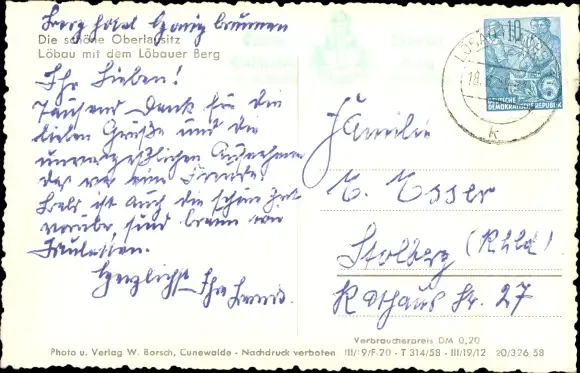 Berghotel Honigbrunnen
Die schöne Oberlausitz
Löbau mit dem Löbauer Berg
Ihr Lieben!
Tausend Dank für die
lieben Grüße und die
unvergeßlichen Aufnahmen
das war eine Freude
Bald ist auch die schöne Zeit
vorüber, sind braun wie
Herzlichst Ihre
LÖBAU
10
DEUTSCHE
DEMOKRATISCHE REPUBLIK
k
Familie
E. Esser
Stolberg (Rhld)
Rathaus Str. 27
Verbraucherpreis DM 0,20
Photo u. Verlag W. Borsch, Cunewalde - Nachdruck verboten III/9/F-20 - T 314/58 - III/19/12 20/326 58